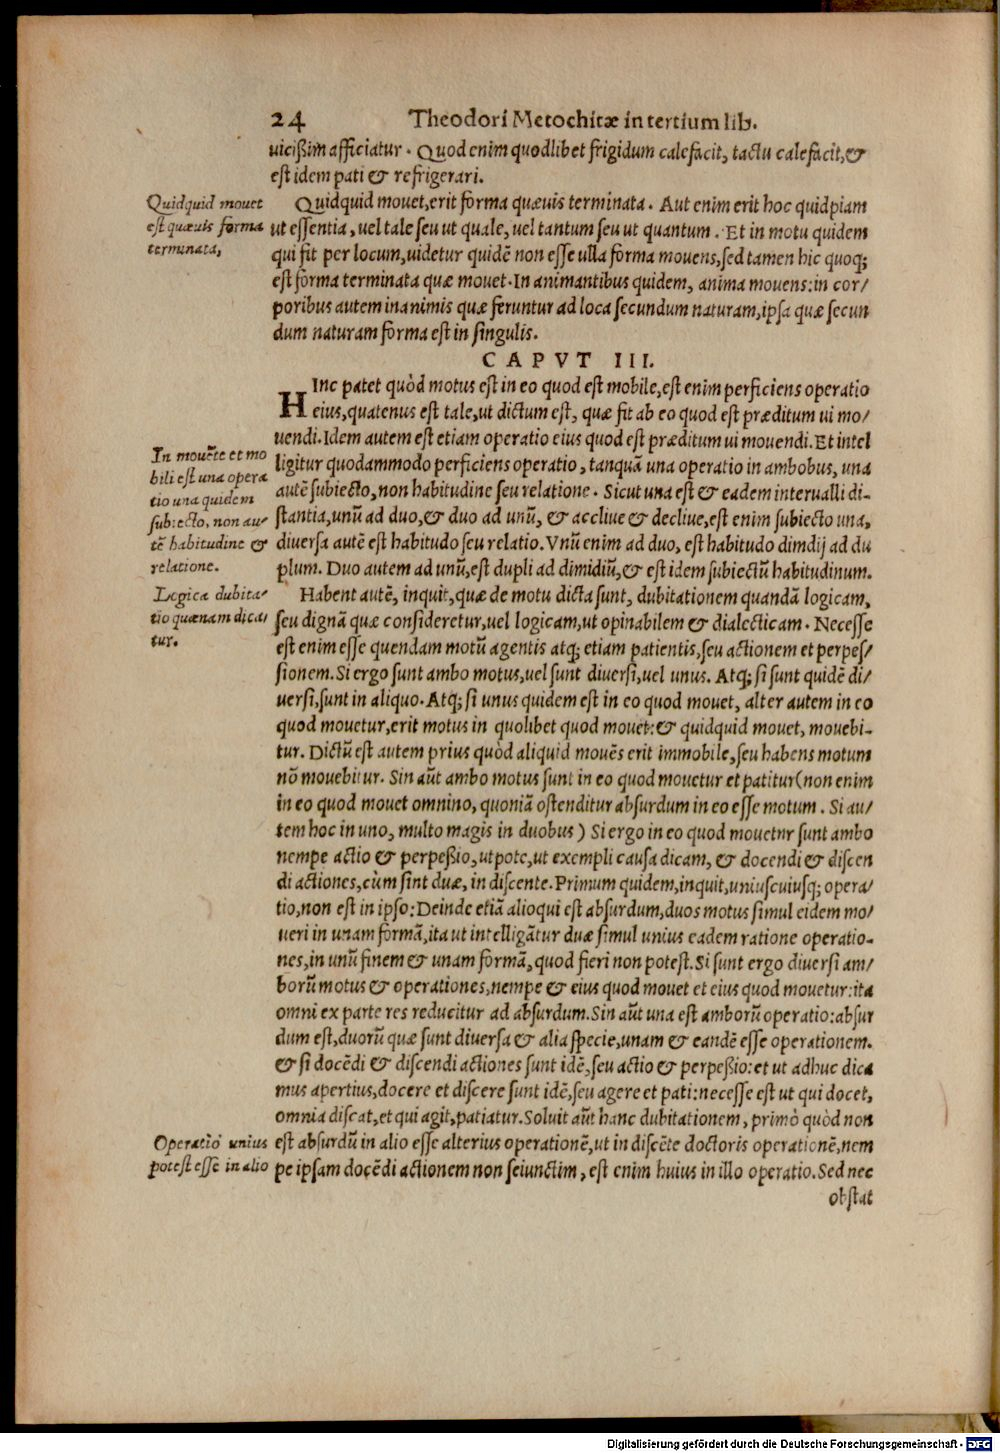 24 Theodori Metochitæ in tertium lib.
uicißim afficiatur. Quod enim quodlibet frigidum calefacit, tactu calefacit, &
est idem pati & refrigerari.
Quidquid mouet
est quæuis forma
terminata,
Quidquid mouet, erit forma quæuis terminata. Aut enim erit hoc quidpiam
ut essentia, uel tale seu ut quale, uel tantum seu ut quantum. Et in motu quidem
qui fit per locum, uidetur quidē non esse ulla forma mouens, sed tamen hic quoq;
est forma terminata quæ mouet. In animantibus quidem, anima mouens: in cor/
poribus autem inanimis quæ feruntur ad loca secundum naturam, ipsa quæ secun
dum naturam forma est in singulis.
CAPVT III.
HInc patet quòd motus est in eo quod est mobile, est enim perficiens operatio
eius, quatenus est tale, ut dictum est, quæ fit ab eo quod est præditum ui mo/
uendi. Idem autem est etiam operatio eius quod est præditum ui mouendi. Et intel
In mouēte et mo
bili est una opera
tio una quidem
subiecto, non au/
tē habitudine &
relatione.
ligitur quodammodo perficiens operatio, tanquā una operatio in ambobus, una
autē subiecto, non habitudine seu relatione. Sicut una est & eadem interualli di-
stantia, unū ad duo, & duo ad unū, & accliue & decliue, est enim subiecto una,
diuersa autē est habitudo seu relatio. Vnū enim ad duo, est habitudo dimdij ad du
plum. Duo autem ad unū, est dupli ad dimidiū, & est idem subiectū habitudinum.
Logica dubita/
tio quænam dica/
tur.
Habent autē, inquit, quæ de motu dicta sunt, dubitationem quandā logicam,
seu dignā quæ consideretur, uel logicam, ut opinabilem & dialecticam. Necesse
est enim esse quendam motū agentis atq; etiam patientis, seu actionem et perpes/
sionem. Si ergo sunt ambo motus, uel sunt diuersi, uel unus. Atq; si sunt quidē di/
uersi, sunt in aliquo. Atq; si unus quidem est in eo quod mouet, alter autem in eo
quod mouetur, erit motus in quolibet quod mouet: & quidquid mouet, mouebi-
tur. Dictū est autem prius quòd aliquid mouēs erit immobile, seu habens motum
nō mouebitur. Sin aūt ambo motus sunt in eo quod mouetur et patitur (non enim
in eo quod mouet omnino, quoniā ostenditur absurdum in eo esse motum. Si au/
tem hoc in uno, multo magis in duobus) Si ergo in eo quod mouetnr sunt ambo
nempe actio & perpeßio, utpote, ut exempli causa dicam, & docendi & discen
di actiones, cùm sint duæ, in discente. Primum quidem, inquit, uniuscuiusq; opera/
tio, non est in ipso: Deinde etiā alioqui est absurdum, duos motus simul eidem mo/
ueri in unam formā, ita ut intelligātur duæ simul unius eadem ratione operatio-
nes, in unū finem & unam formā, quod fieri non potest. Si sunt ergo diuersi am/
borū motus & operationes, nempe & eius quod mouet et eius quod mouetur: ita
omni ex parte res reducitur ad absurdum. Sin aūt una est amborū operatio: absur
dum est, duorū quæ sunt diuersa & alia specie, unam & eandē esse operationem.
& si docēdi & discendi actiones sunt idē, seu actio & perpeßio: et ut adhuc dica
mus apertius, docere et discere sunt idē, seu agere et pati: necesse est ut qui docet,
omnia discat, et qui agit, patiatur. Soluit aūt hanc dubitationem, primò quòd non
Operatio unius
potest esse in alio
est absurdū in alio esse alterius operationē, ut in discēte doctoris operationē, nem
pe ipsam docēdi actionem non seiunctim, est enim huius in illo operatio. Sed nec
obstat
Digitalisierung gefördert durch die Deutsche Forschungsgemeinschaft - DFG